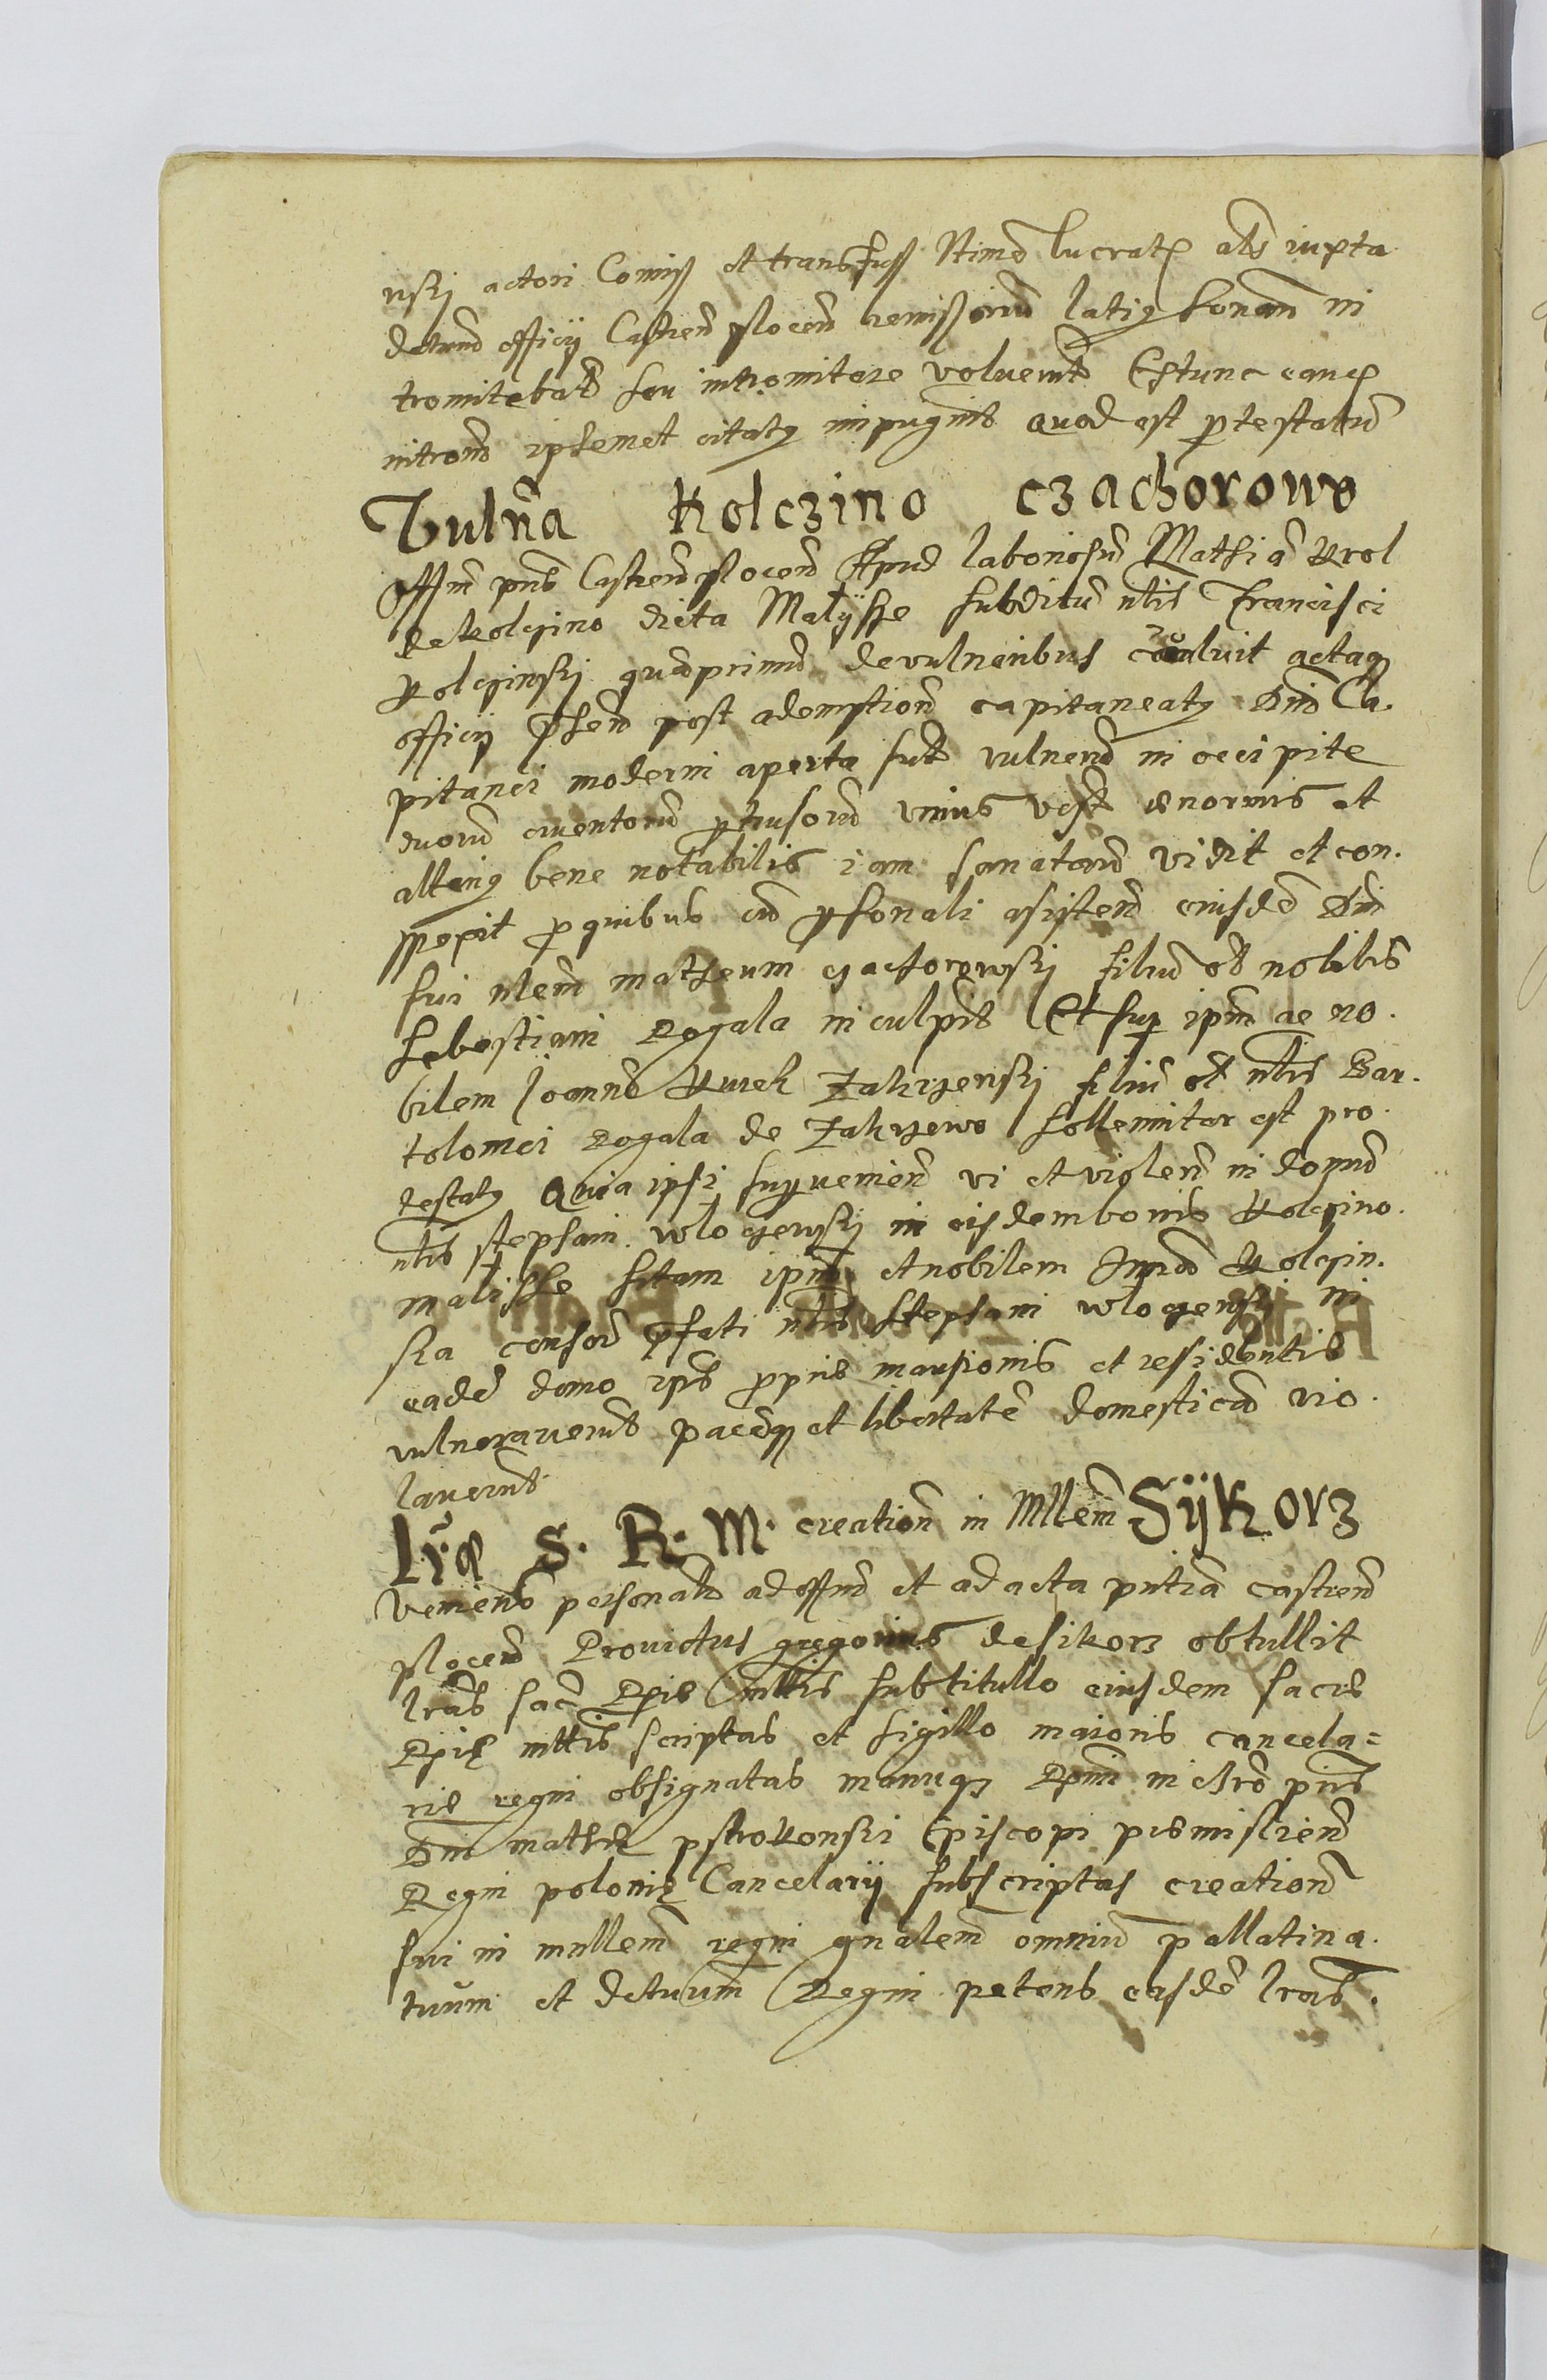 nskij actori Comiss et transfuss Ntimo lucratq als iuxta
detund officij Castren plocen remissorium latig sonam in
tromitebat seu intromitere voluerint Extunc eandq
introm ipsemet citatq impugnit quod est protestatum
Vulna Kolczino czachorowo
Offm pns Castren plocen Apud laboriosum Mathiam Krol
de Kolczino dicta Malijsze subditum nblis Francisci
Kolczinskij quamprimum de vulneribus coaluit actaq
officij Phem post ademptionem capitaneatq Dni Ca.
pitanei moderni aperta sunt vulnerum in occipite
duorum cruentorum pertusorum unius vest enormis et
alterig bene notabilis iam sanatorum vidit et con.
spexit pro quibus cum personali asisten eiusdem Dni
sui nblem matheum czachorowskij filium ol nobilis
sebastiani Rogala inculpat Et sup ipm ac no.
bilem Joannem Kurek Zakrzewskij filium ol nblis Bar.
tolomei Rogala de Zakrzewo sollemniter est pro.
testatq Quia ipsi supervenien vi et violen in domum
nblis stephani wloczewskij in eisdem bonis Kolczino
malisze sitam ipm et nobilem Kolczin.
ska consor prefati nblis stephani wloczewskij in
eadem domo ips proprie mansionis et residentis
vulneraverunt pacemq et libertatem domesticam vio.
laverunt
Lrae S. R. M. creation in Mllem Sijkorz
Veniens personalr ad offm et ad acta pntia castren
plocen Provictus gregorius de sikorz obtullit
lras sac Rgie mttis sub titullo eiusdem sacre
Rgie mttis scriptas et sigillo maioris cancela=
rie regni obsignatas manuq Rmi in chro pris
Dni mathie pstrokonski Episcopi premislien
Regni polonie Cancelarij subscriptas creationem
sui in mllem regni gnalem omnium pallatina.
tuum et detuum Regni petens easdem lras.